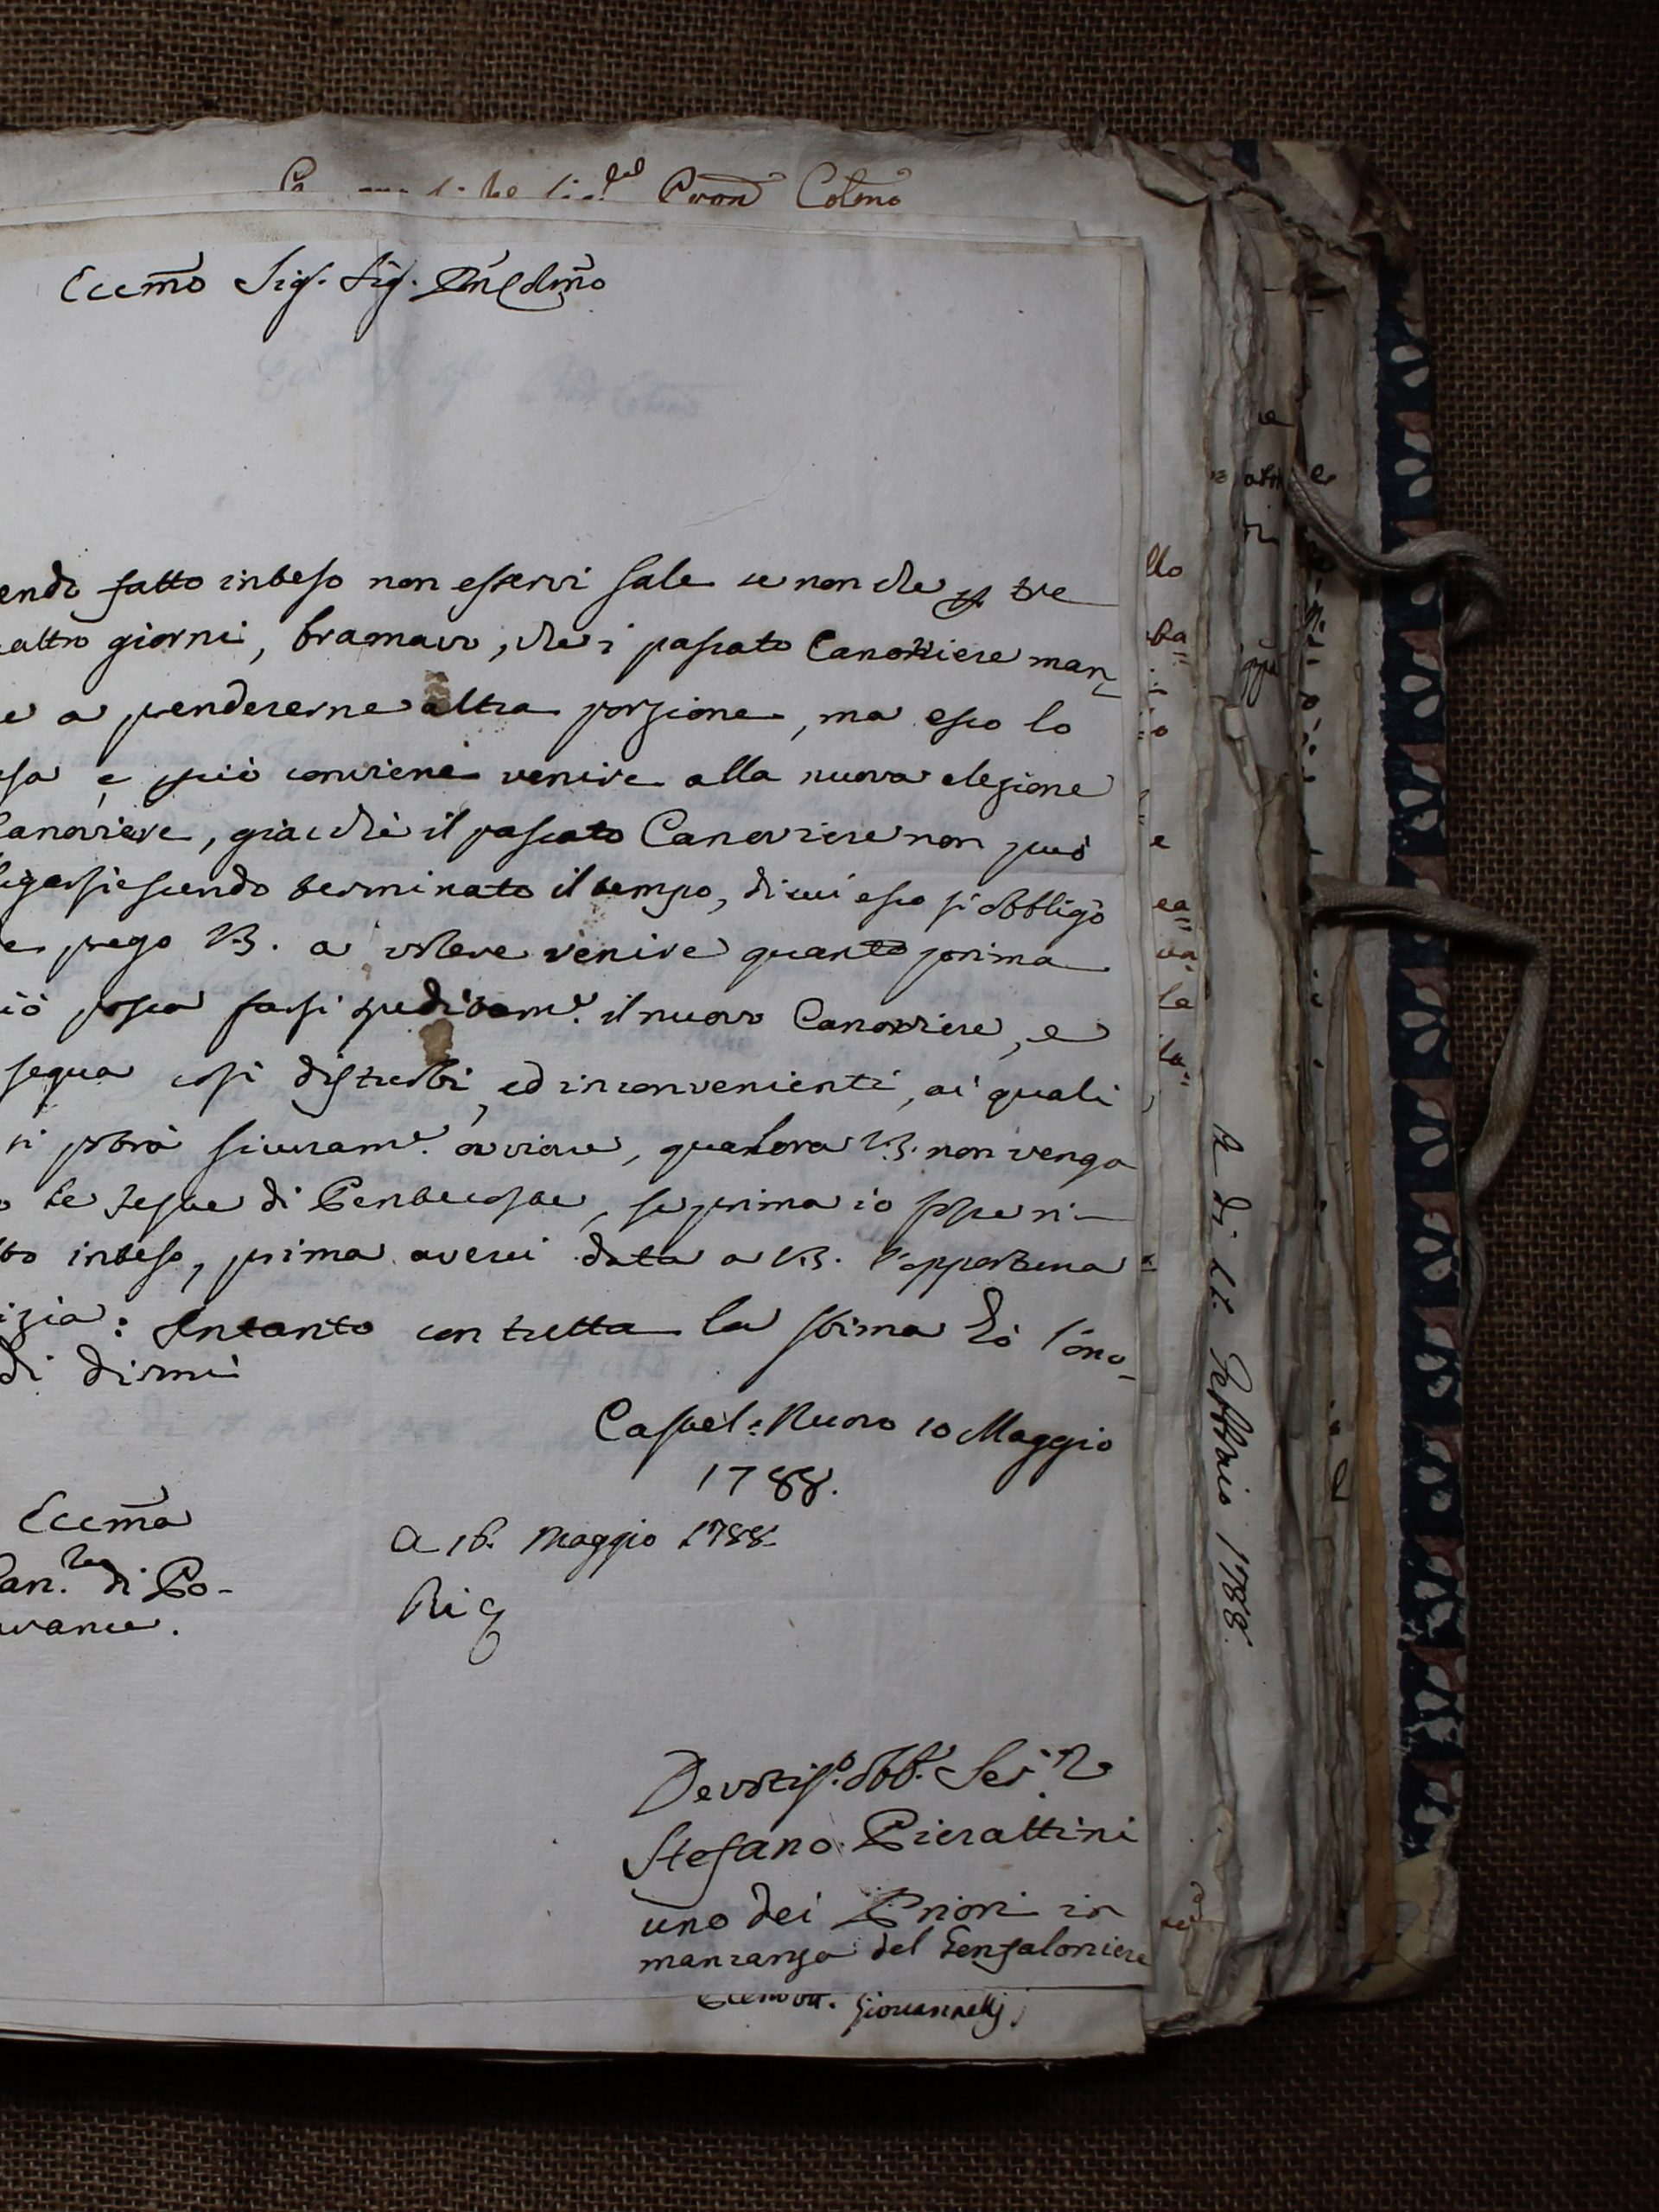 Eccmo Sig. Sig. Pne Colmo
endo fatto inteso non esservi sale se non che p tre
attro giorni, bramavo, che i passato Canoviere man=
e a prendererne altra porzione, ma esso lo
usa e però conviene venire alla nuova elezione
Canoviere, giacchè il passato Canoviere non può
ligarsi essendo terminato il tempo, di cui esso si obbligò
e prego V.S. a volere venire quanto prima
iò possa farsi speditam.e il nuovo Canoviere, e
segua così disturbi, ed inconvenienti, ai quali
si potrà sicuram.e ovviare, qualora V.S. non venga
o le Feste di Pentecoste, se prima io fossi ri-
to inteso, prima averei data a V.S. l'opportuna
izia: Intanto con tutta la stima hò l'ono-
di dirmi
Castel: Nuovo 10 Maggio
1788.
Eccma
A 16. Maggio 1788
Can.re di Po-
arance.
Ris
Devotis.o Obb. Ser.re
Stefano Pierattini
uno dei Priori in
mancanza del Gonfaloniere
Giovannelli
A di 21. Febbraio 1788